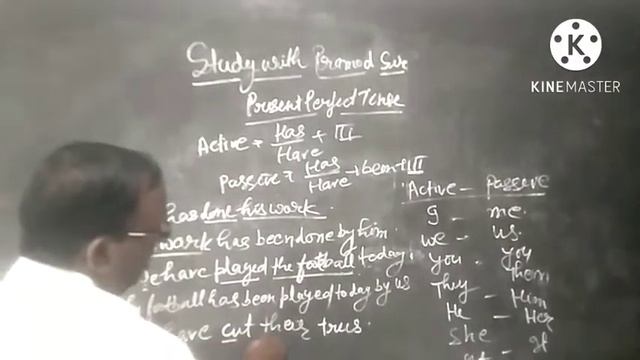 Study with Pramod Sir
Present Perfect Tense
Active = Has/Have + III
Passive = Has/Have + been + III
has done his work.
work has been done by him.
have played the football today.
football has been played today by us
have cut their trees.
Active - Passive
I - me.
we - us.
you - you
They - them
He - Him
She - Her
K
KINEMASTER